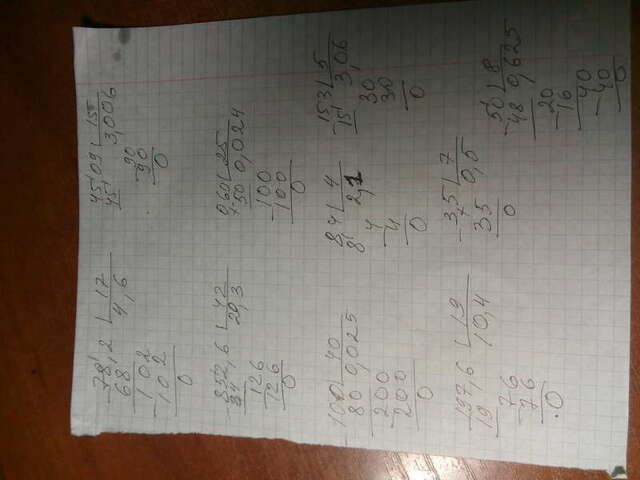 78,2 | 17
68 4,6
102
102
0
45,09 | 15
45 3,006
90
90
0
852,6 | 42
84 20,3
126
126
0
0,60 | 25
50 0,024
100
100
0
100 | 40
80 0,025
200
200
0
8,4 | 4
8 2,1
4
4
0
153 | 5
15 3,06
30
30
0
197,6 | 19
19 10,4
76
76
0
3,5 | 7
35 0,5
0
50 | 8
48 0,625
20
16
40
40
0